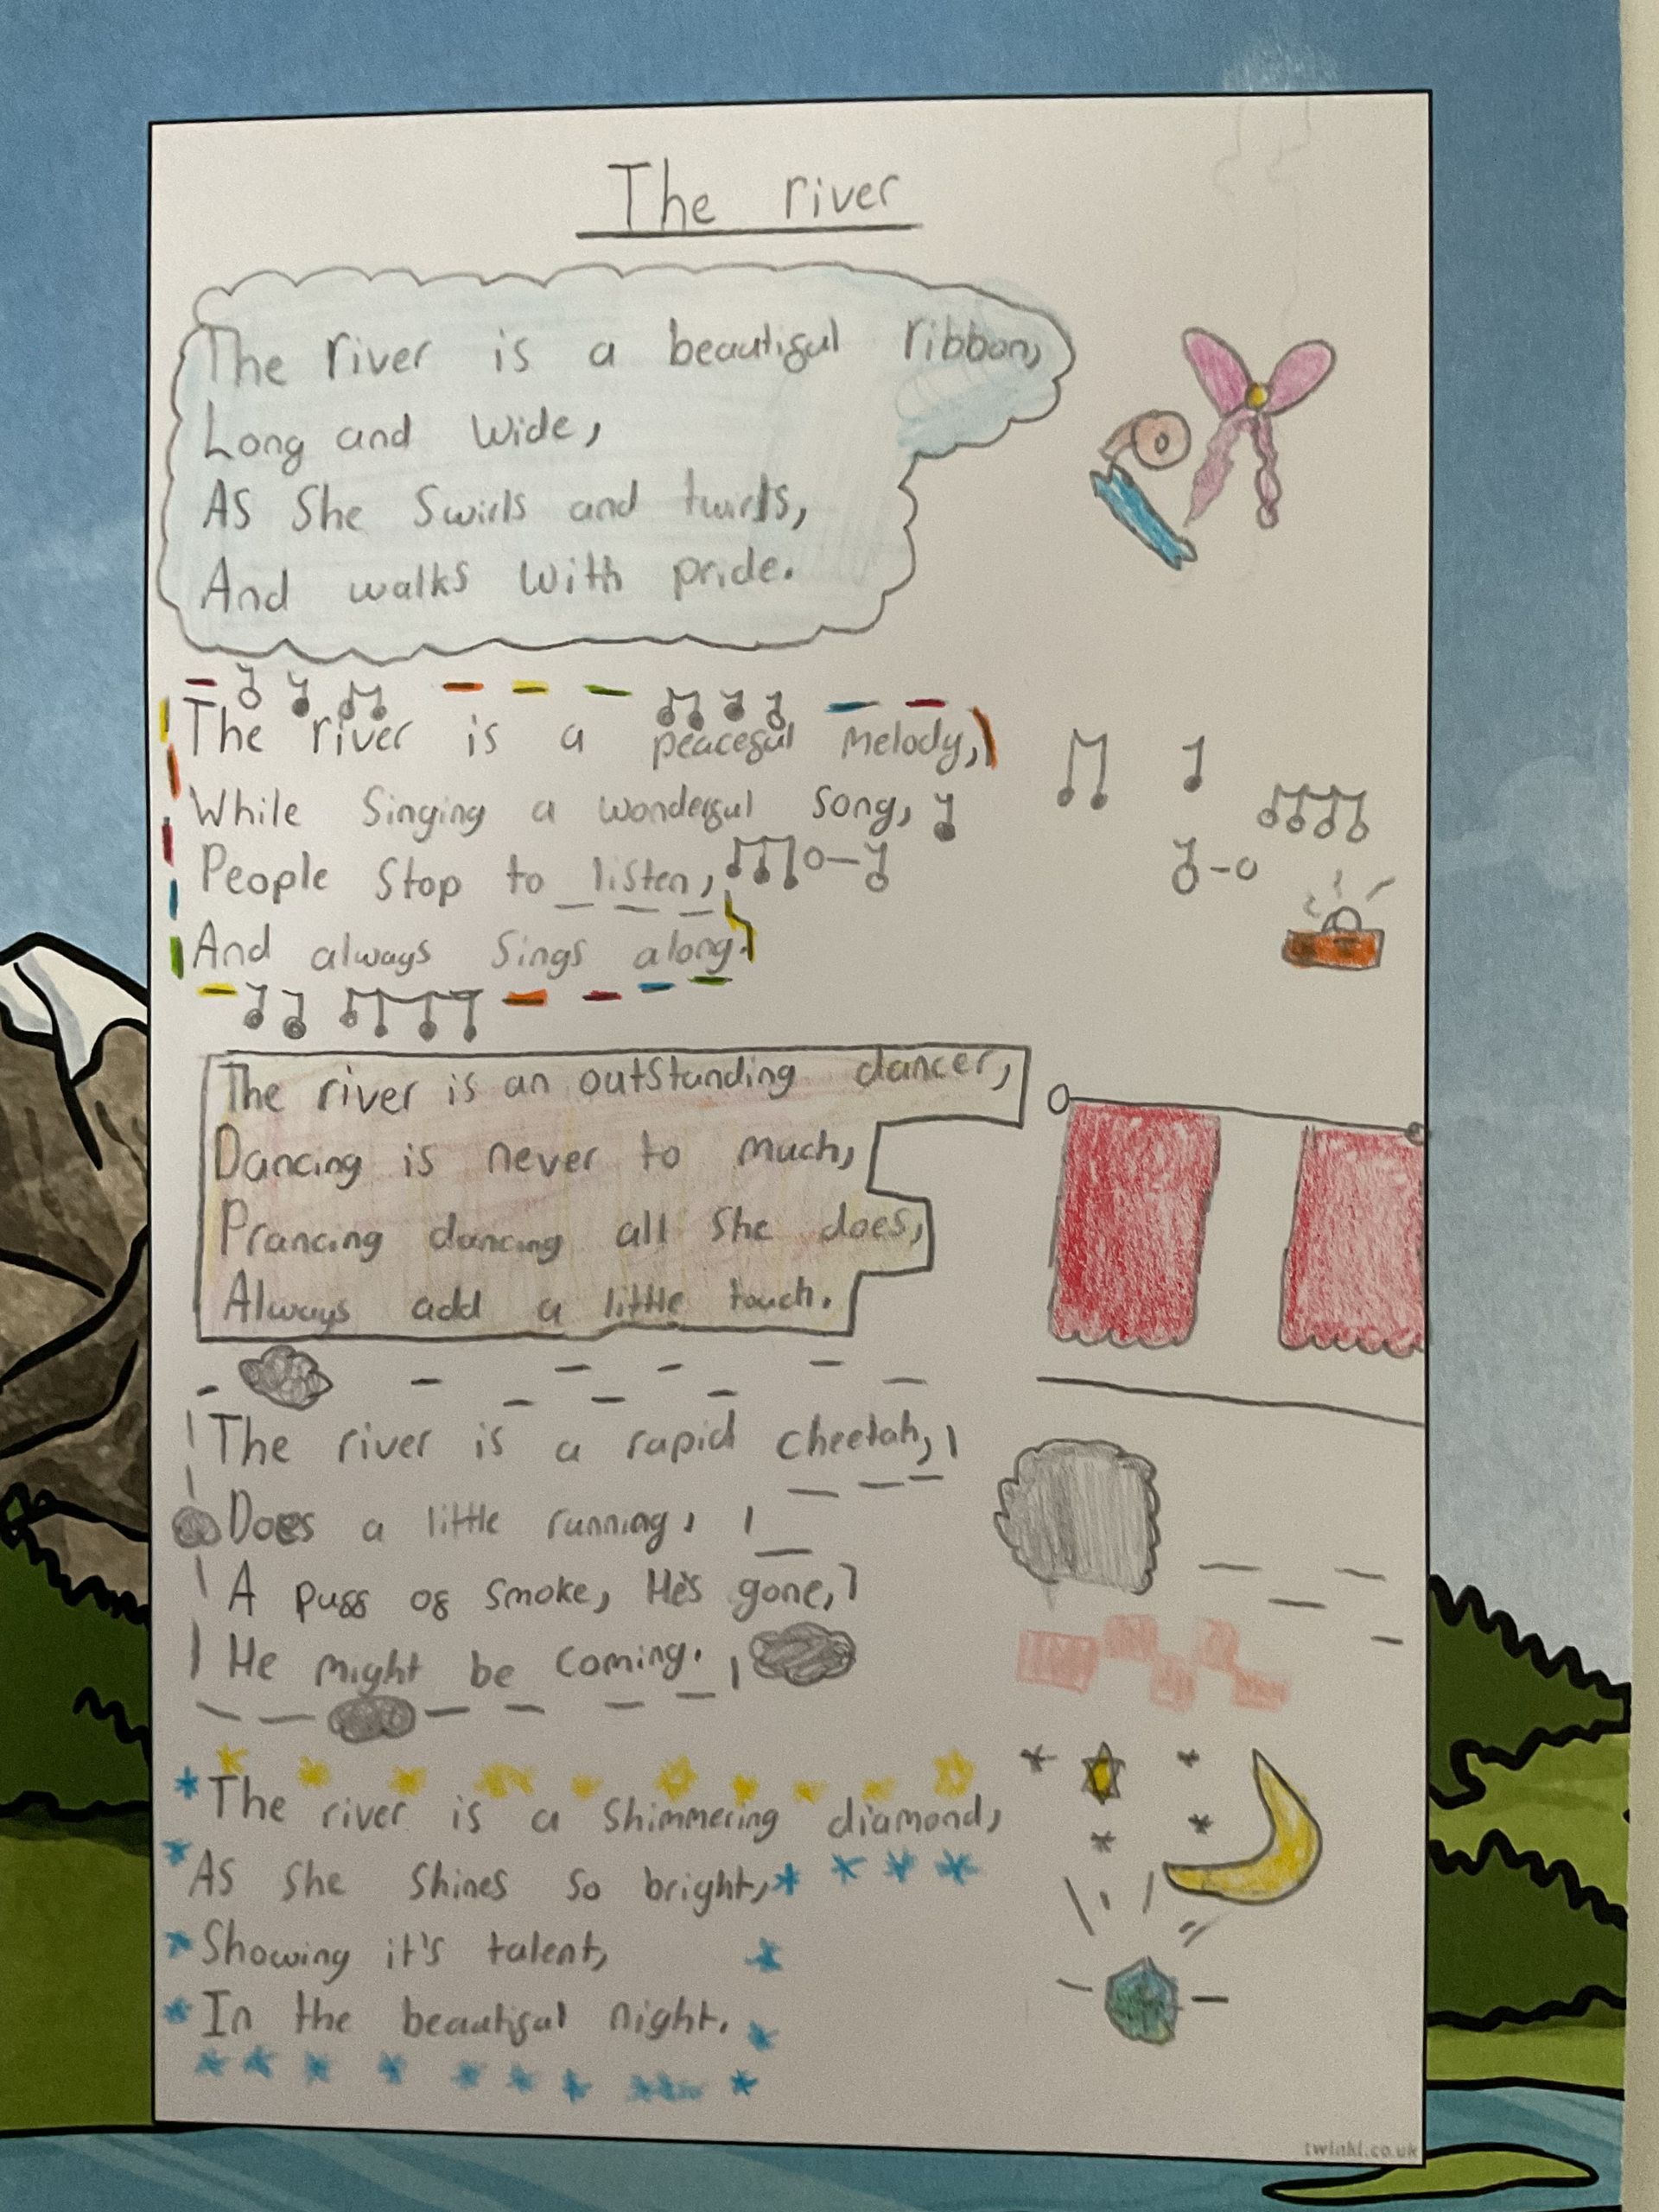 The river
The river is a beautiful ribbon,
Long and wide,
As she swirls and twirls,
And walks with pride.
The river is a peaceful melody,
While singing a wonderful song,
People stop to listen,
And always sings along.
The river is an outstanding dancer,
Dancing is never to much,
Prancing dancing all she does,
Always add a little touch.
The river is a rapid cheetah,
Does a little running,
A puff of smoke, He's gone,
He might be coming.
The river is a shimmering diamond,
As she shines so bright,
Showing it's talent,
In the beautiful night.
twinkl.co.uk